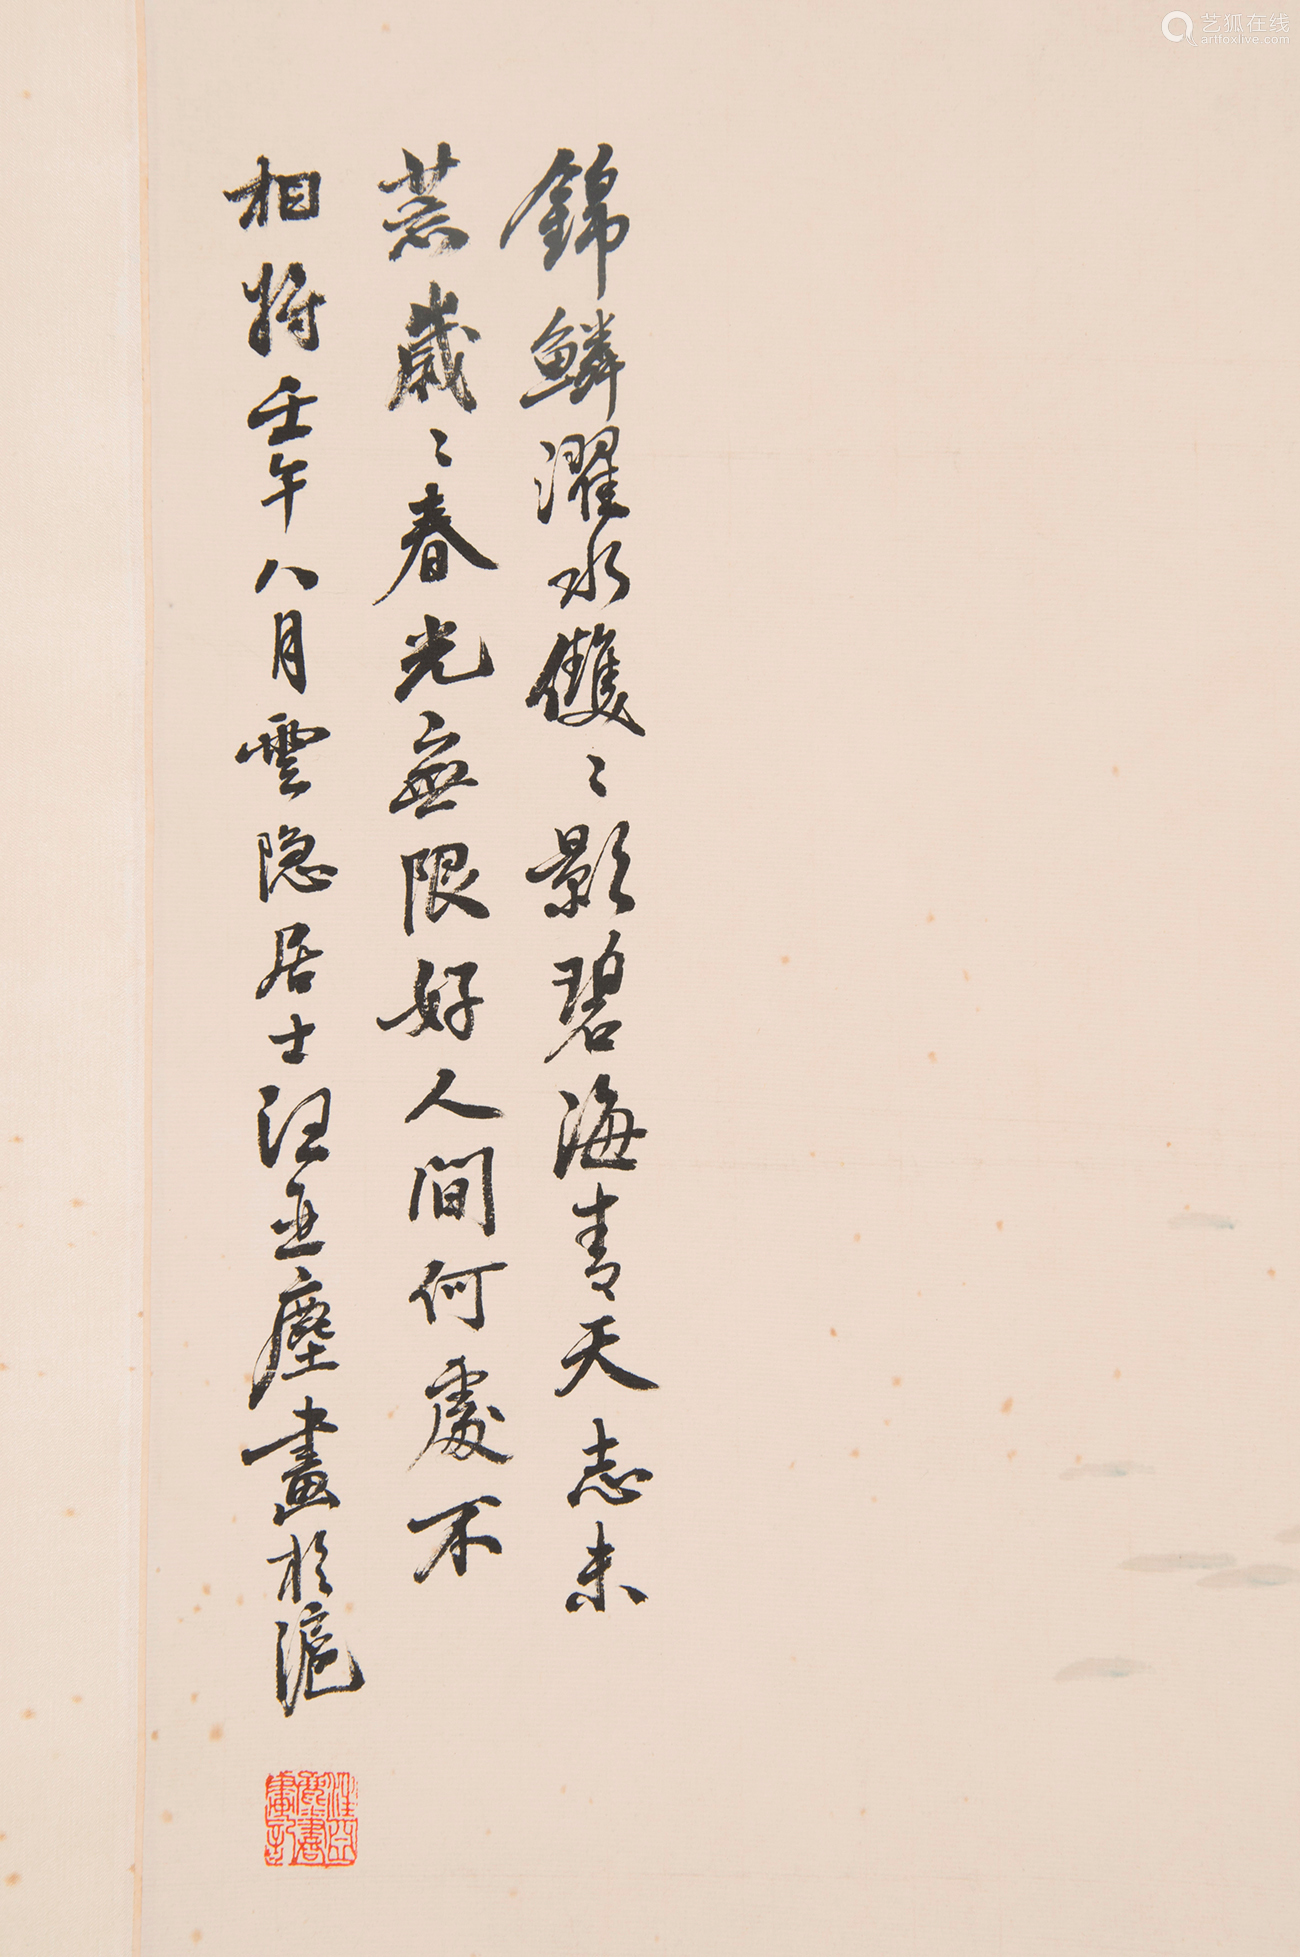 錦鱗濯水雙〻影碧海青天志未
荒歲〻春光無限好人間何處不
相將壬午八月雲隐居士汪亞塵畫於滬
艺狐在线
artfoxlive.com